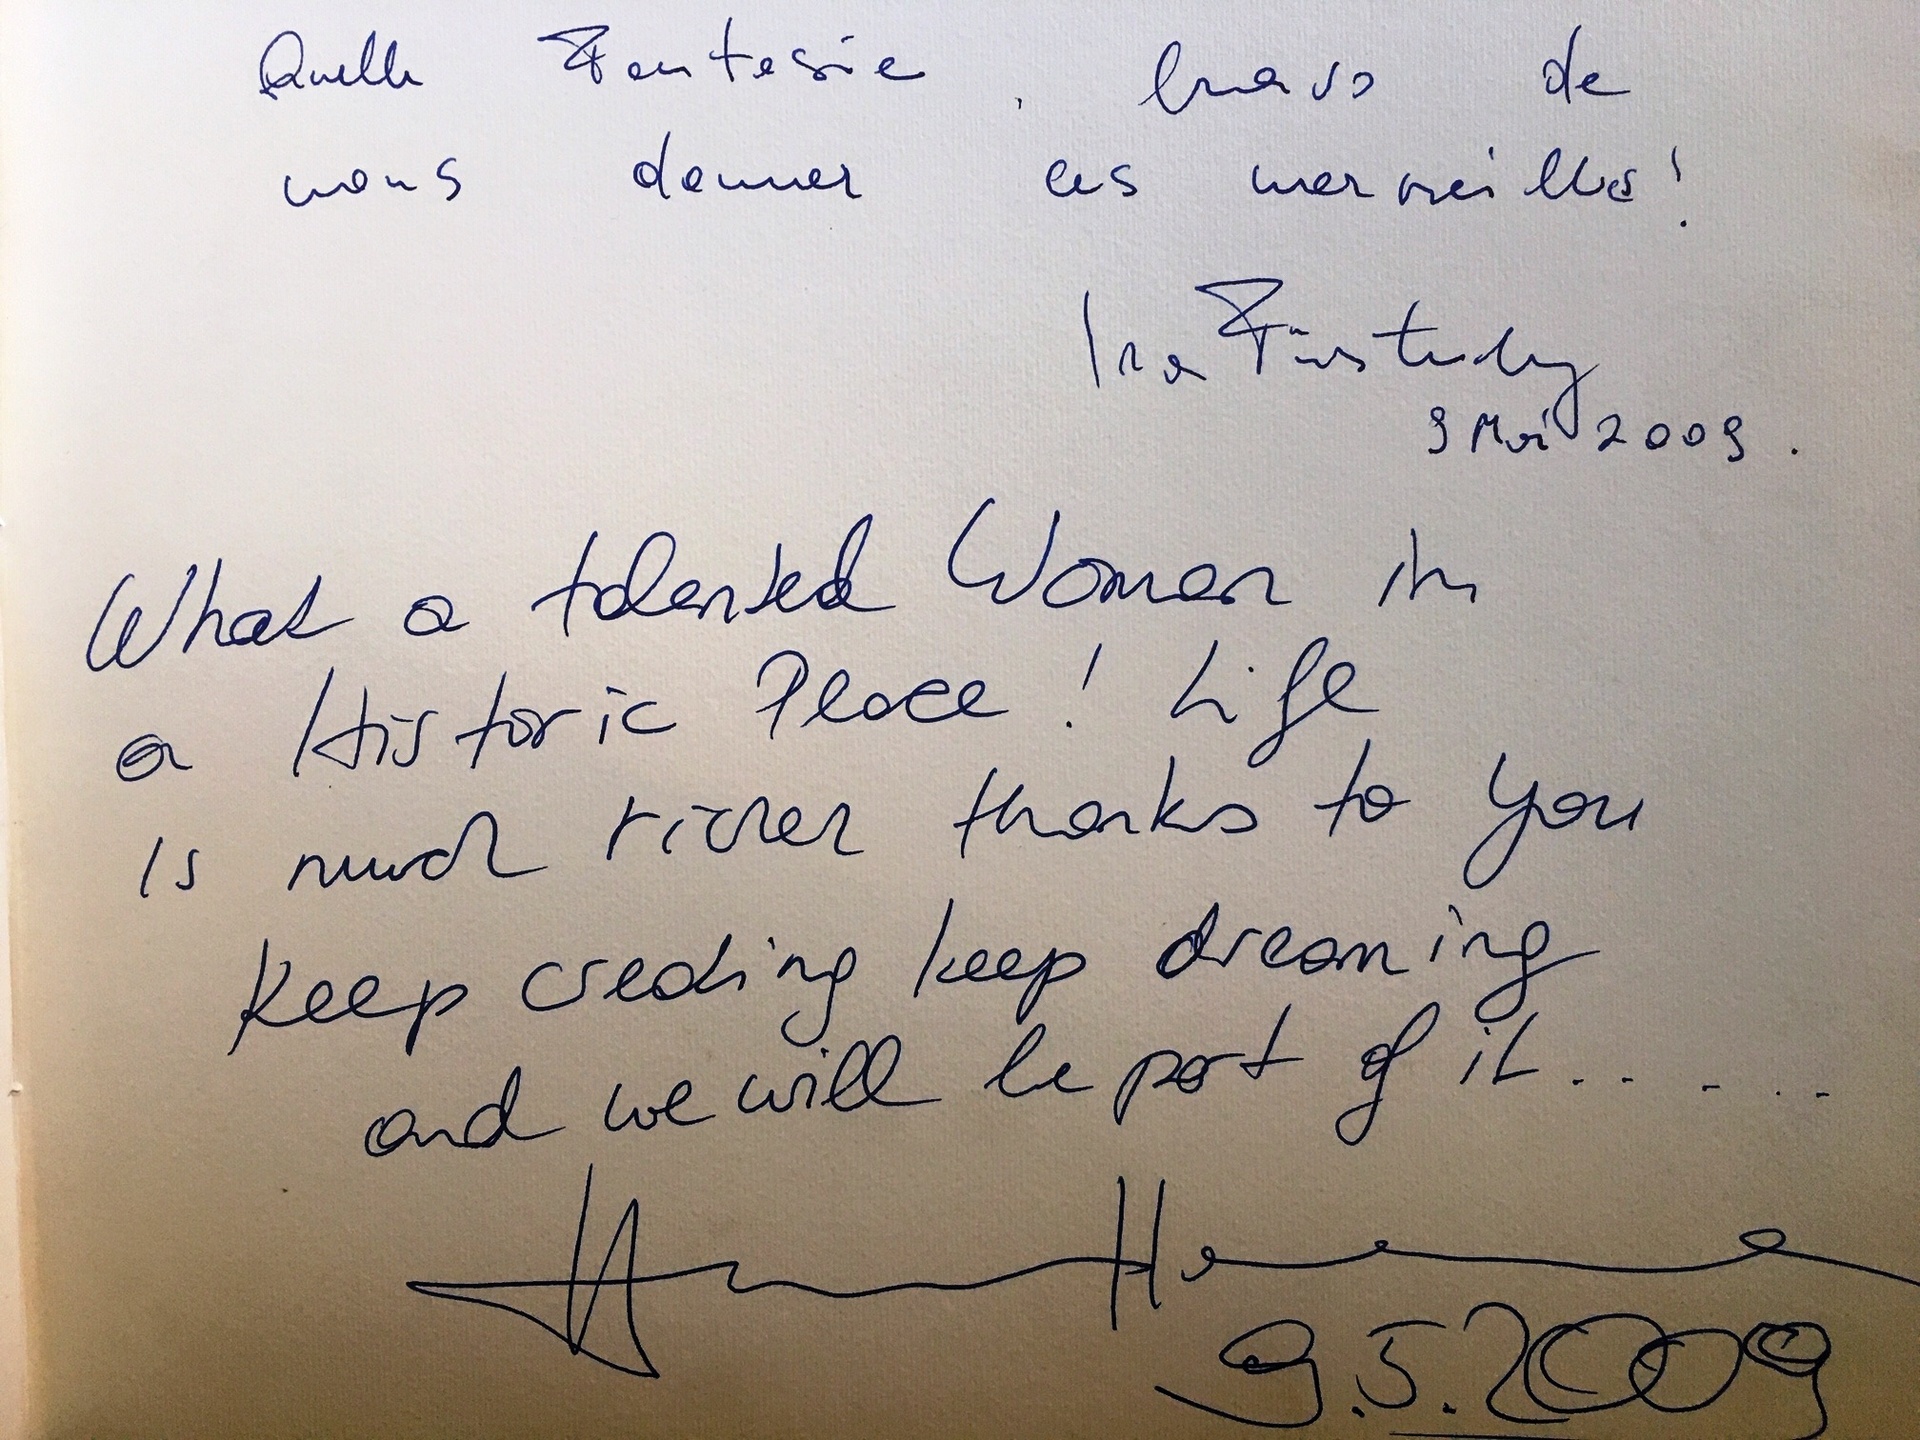 Quelle Fantesie, bravo de
nous donner ces merveilles!
Ira Fürstenberg
9 Mai 2009.
What a talented Woman in
a Historic Place! Life
is much richer thanks to You
Keep creating keep dreaming
and we will be part of it......
9.5.2009